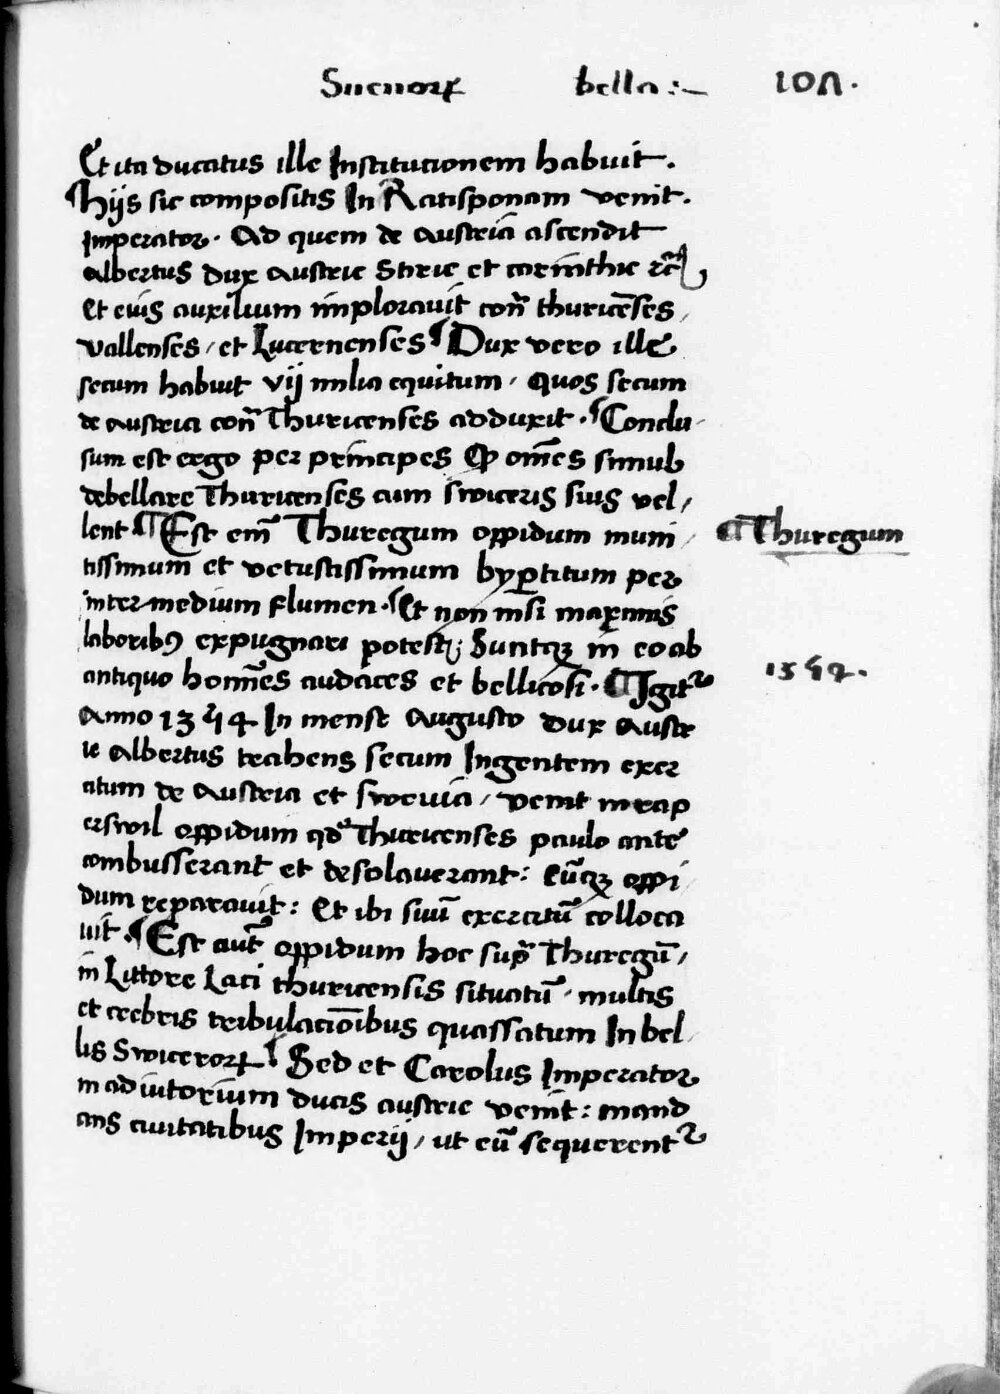 Sueuorꝝ bella :— 107.
Et ita ducatus ille Institucionem habuit.
¶ Hijs sic compositis In Ratisponam venit.
Imperator. Ad quem de austria ascendit
albertus dux austrie Stirie et carinthie ꝛcͣ,
Et eius auxilium imploravit con̄ thuricēses,
vallenses, et Lucernenses ¶ Dux vero ille
secum habuit vij milia equitum, quos secum
de austria con̄ Thuricenses adduxit. ¶ Conclu-
sum est ergo per principes ꝙ om̄es simul
debellare Thuricenses cum switeris suis vel,
lent ¶ Est em̄ Thuregum oppidum muni,
tissimum et vetustissimum byꝑtitum per
inter-medium flumen. ¶ Et non nisi maximis
laboribꝰ expugnari potest; Suntqꝫ in eo ab
antiquo homines audaces et bellicosi. ¶ Igitᷣ
Anno 1354 In mense Augusto dux Austr
ie Albertus trahens secum Ingentem exer
citum de Austria et swevia, venit in rap
erswil oppidum qd̓ Thuricenses paulo ante
combusserant et desolauerant: Eūqꝫ oppi,
dum reparavit: Et ibi suū exercitū colloca
uit. ¶ Est aut̄ oppidum hoc supͣ Thuregū,
in Littore Laci thuricensis situatū, multis
et crebris tribulaciōibus quassatum In bel
lis Switerorꝝ ¶ Sed et Carolus Imperator
in adiutorium ducis austrie venit: mand
ans ciuitatibus Imperij, ut eū sequerentᷣ
¶ Thuregum
1354.